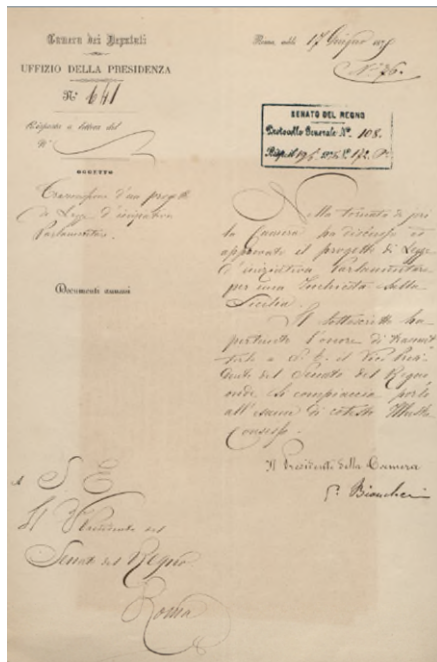 Camera dei Deputati
UFFIZIO DELLA PRESIDENZA
N° 641
Risposta a lettera del
N°
OGGETTO
Trasmissione d'un progetto
di Legge d'iniziativa
Parlamentare.
Documenti annessi
Roma, addì 17 Giugno
N° 76.
SENATO DEL REGNO
Protocollo Generale N° 108.
Nella tornata di jeri
la Camera ha discusso ed
approvato il progetto di Legge
d'iniziativa Parlamentare
per una Inchiesta sulla
Sicilia.
Il sottoscritto ha
pertanto l'onore di trasmet
terlo a S. E. il Vice Presi
dente del Senato del Regno
onde si compiaccia porlo
all'esame di cotesto Illustre
Consesso.
Il Presidente della Camera
G. Biancheri
A S E
Il V Presidente del
Senato del Regno
Roma